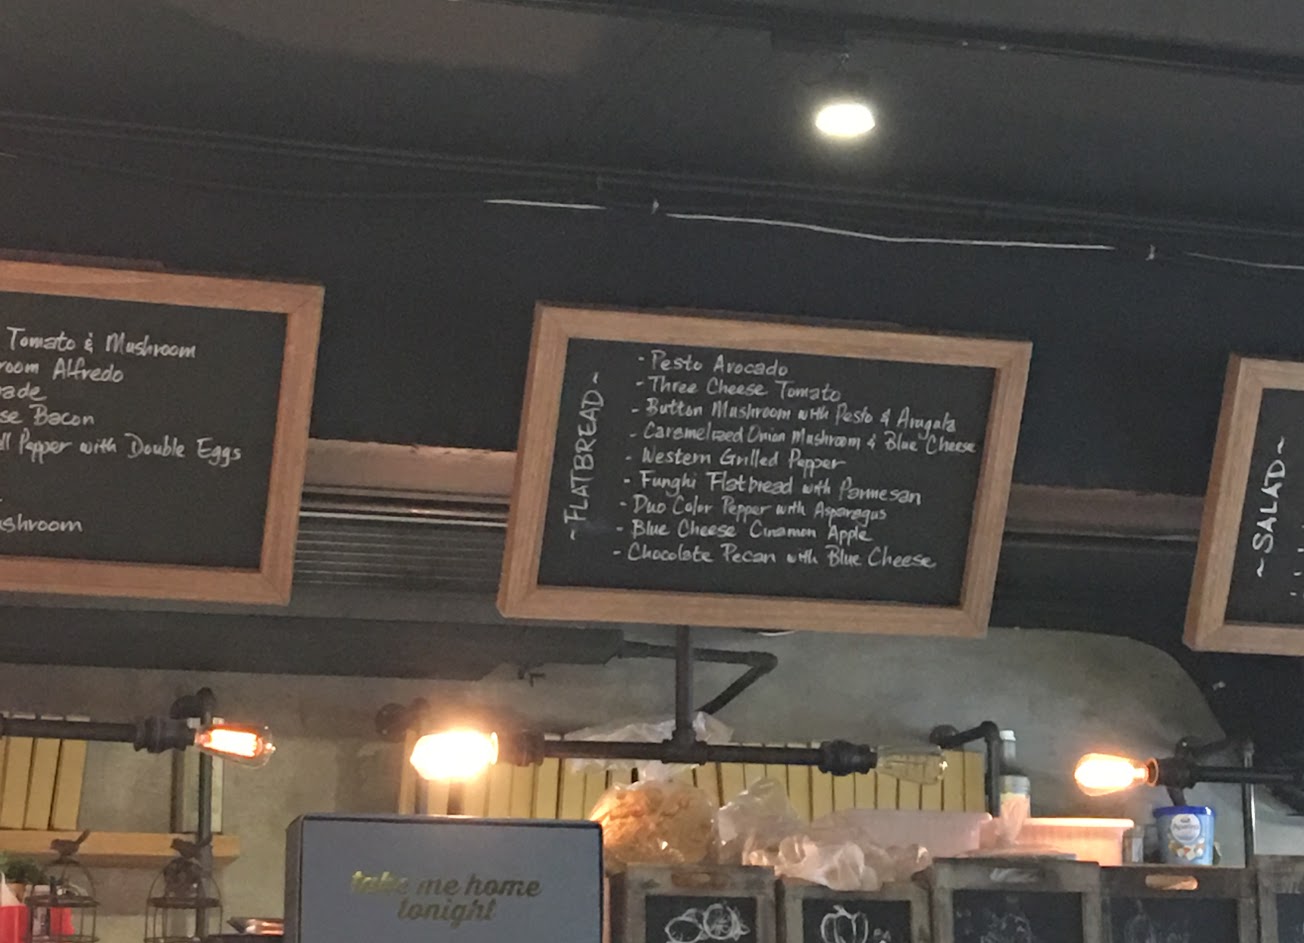 Tomato & Mushroom
Alfredo
Bacon
Pepper with Double Eggs
~FLATBREAD~
- Pesto Avocado
- Three Cheese Tomato
- Button Mushroom with Pesto & Arugula
- Caramelized Onion Mushroom & Blue Cheese
- Western Grilled Pepper
- Funghi Flatbread with Parmesan
- Duo Color Pepper with Asparagus
- Blue Cheese Cinamon Apple
- Chocolate Pecan with Blue Cheese
~SALAD~
take me home
tonight